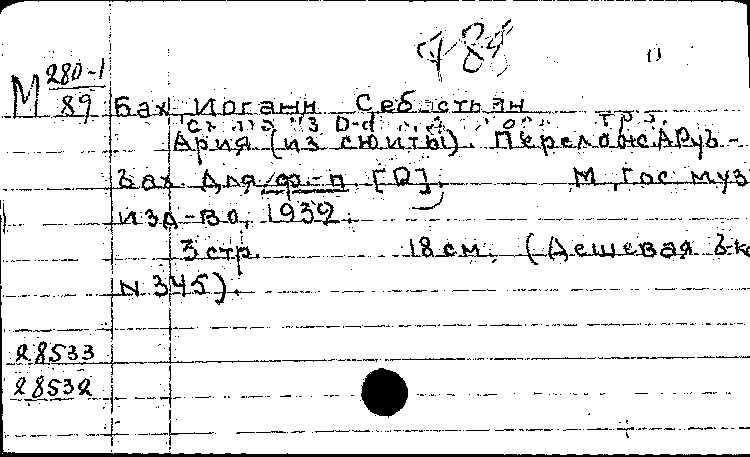 784
М 280-1
89
Бах, Иоганн Себастьян
Ария (из сюиты). Перелож. А Руб-
бах для ф.-п. [D]. М., Гос муз
изд-во, 1932.
3 стр. 18 см. (Дешевая б-к
N 345).
28533
28532